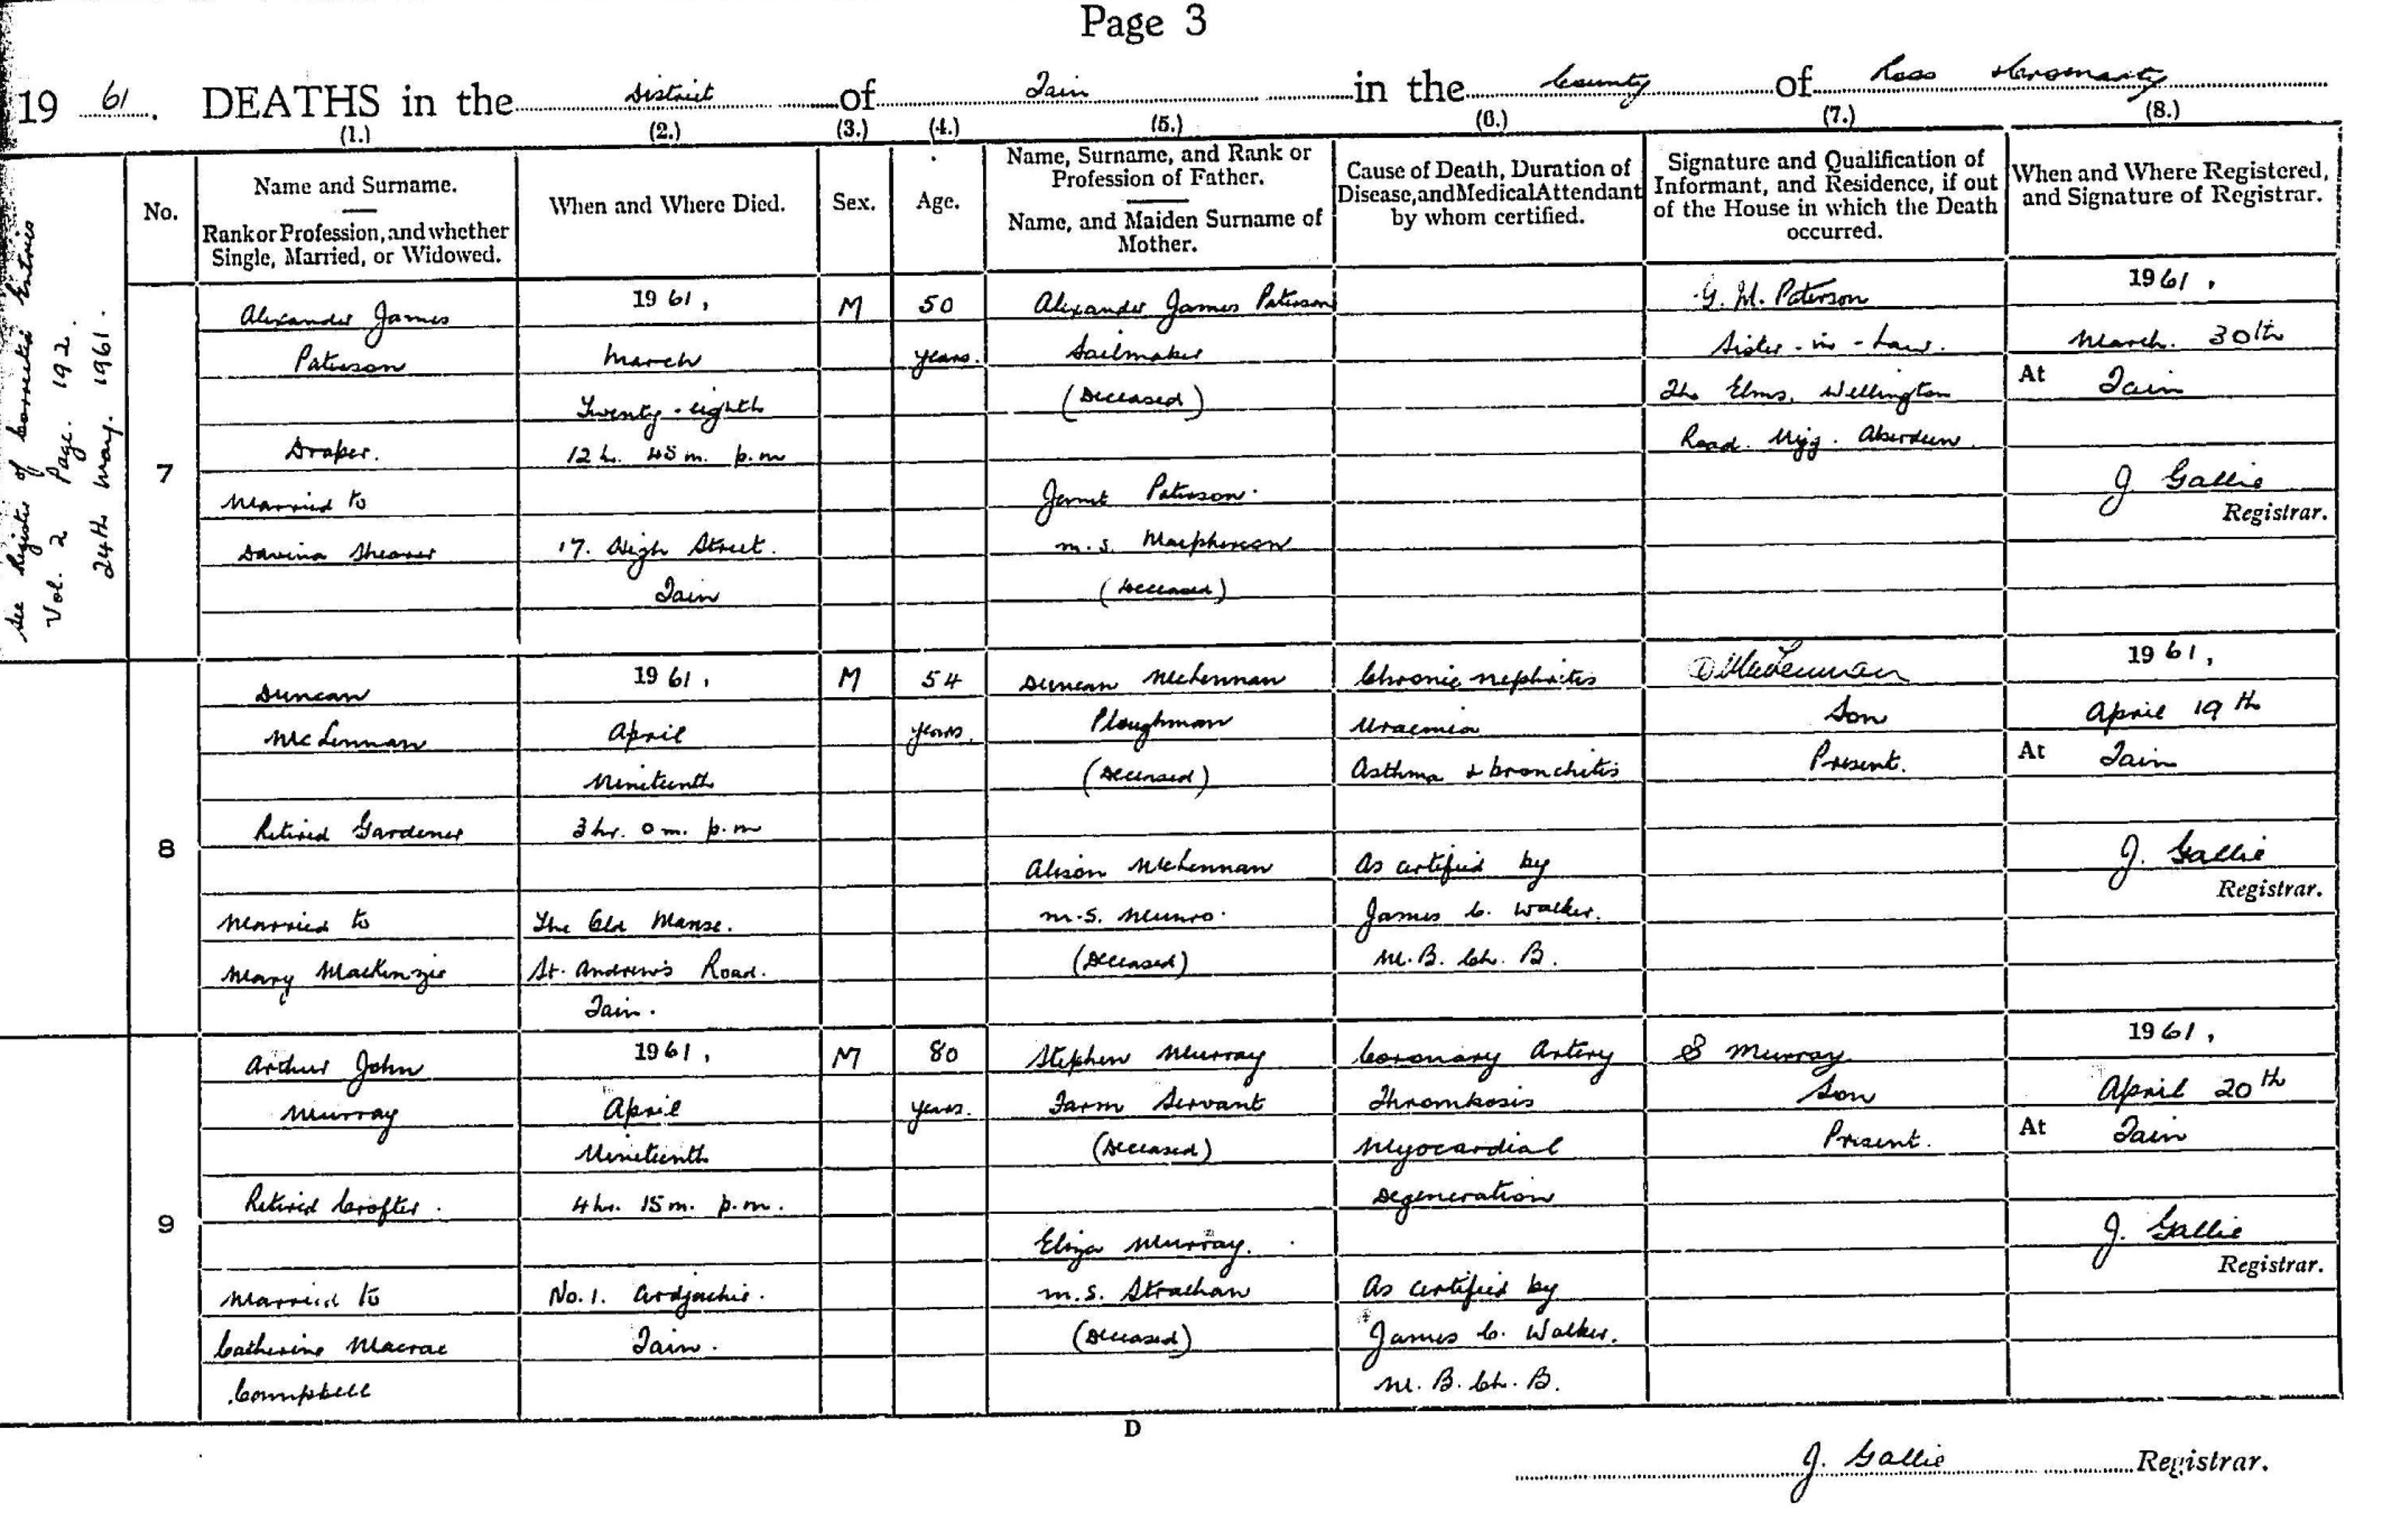 Page 3
19 61. DEATHS in the District of Tain in the County of Ross & Cromarty
(1.) (2.) (3.) (4.) (5.) (6.) (7.) (8.)
No.
Name and Surname.
Rank or Profession, and whether
Single, Married, or Widowed.
When and Where Died.
Sex.
Age.
Name, Surname, and Rank or
Profession of Father.
Name, and Maiden Surname of
Mother.
Cause of Death, Duration of
Disease, and Medical Attendant
by whom certified.
Signature and Qualification of
Informant, and Residence, if out
of the House in which the Death
occurred.
When and Where Registered,
and Signature of Registrar.
See Register of Corrected Entries
Vol. 2 Page. 192.
24th May. 1961.
7
Alexander James
Paterson
Draper.
Married to
Davina Shearer
1961,
March
Twenty-eighth
12 h. 45 m. p.m
17. High Street.
Tain
M
50
years.
Alexander James Paterson
Sailmaker
(Deceased)
Janet Paterson.
m.s. Macpherson
(Deceased)
G. M. Paterson
Sister-in-Law.
The Elms. Wellington
Road. Nigg. Aberdeen.
1961,
March. 30th
At Tain
J Gallie
Registrar.
8
Duncan
McLennan
Retired Gardener
Married to
Mary MacKenzie
1961,
April
Nineteenth
3 hr. 0 m. p.m
The Old Manse.
St. Andrew's Road.
Tain.
M
54
years.
Duncan McLennan
Ploughman
(Deceased)
Alison McLennan
m.s. Munro.
(Deceased)
Chronic nephritis
Uraemia
Asthma & bronchitis
As certified by
James C. Walker.
M.B. Ch. B.
D McLennan
Son
Present.
1961,
April 19th
At Tain
J. Gallie
Registrar.
9
Arthur John
Murray
Retired Crofter.
Married to
Catherine Macrae
Campbell
1961,
April
Nineteenth
4 hr. 15 m. p.m.
No. 1. Ardjachie.
Tain.
M
80
years.
Stephen Murray
Farm Servant
(Deceased)
Eliza Murray.
m.s. Strachan
(Deceased)
Coronary Artery
Thrombosis
Myocardial
Degeneration
As certified by
James C. Walker.
M.B. Ch. B.
S Murray
Son
Present.
1961,
April 20th
At Tain
J. Gallie
Registrar.
D
J. Gallie Registrar.